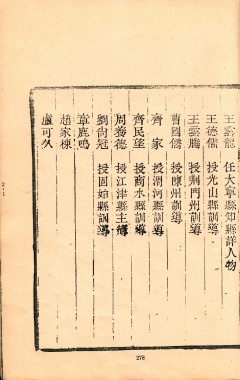 王雲龍 任大寧縣知縣詳人物
王德儒 授光山縣訓導
王雲騰 授荆門州訓導
曹國儒 授陳州訓導
齊家 授渭河縣訓導
齊民望 授商水縣訓導
周養德 授江津縣主簿
劉尚冠 授固始縣訓導
章鹿鳴
趙家棟
盧可久
278